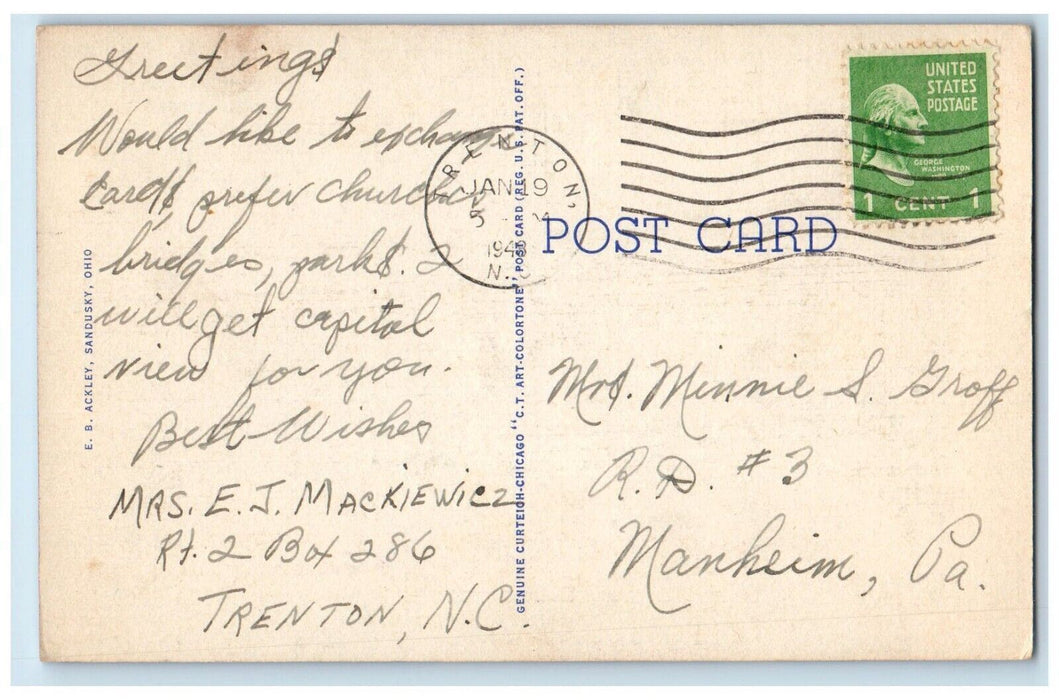 Greetings
Would like to exchange
cards, prefer churches
bridges, parks. I
will get capitol
view for you.
Best Wishes
MRS. E. J. MACKIEWICZ
Rt. 2 Box 286
TRENTON, N.C.
E. B. ACKLEY, SANDUSKY, OHIO
GENUINE CURTEICH-CHICAGO "C.T. ART-COLORTONE" POST CARD (REG. U.S. PAT. OFF.)
TRENTON,
JAN 19
N.C.
POST CARD
UNITED
STATES
POSTAGE
GEORGE
WASHINGTON
1 CENT 1
Mrs. Minnie S. Groff
R.D. #3
Manheim, Pa.